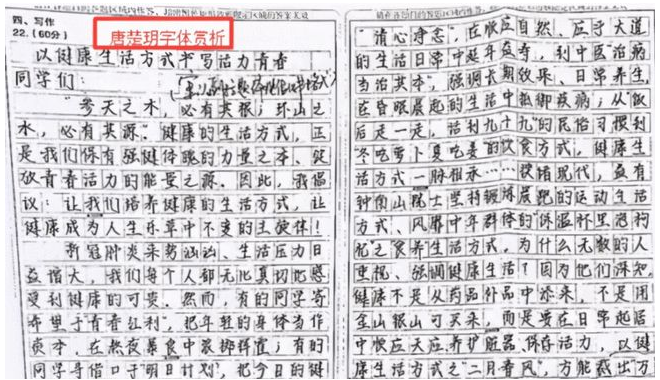 四、写作
22.(60分)
唐楚玥字体赏析
以健康生活方式书写活力青春
同学们:
"参天之木,必有其根;环山之
水,必有其源。"健康的生活方式,正
是我们保有强健体魄的力量之本、绽
放青春活力的能量之源。因此,我倡
议:让我们培养健康的生活方式,让
健康成为人生乐章中不变的主旋律!
新冠肺炎来势汹汹、生活压力日
益增大,我们每个人都无比真切地感
受到健康的可贵。然而,有的同学寄
希望于"青春红利",把年轻的身体当作
资本,在熬夜暴食中浪掷挥霍;有的
同学寄借口于"明日计划",把今日的健
"清心净志",在顺应自然、应乎大道
的生活日常中延年益寿,到中医"治病
当治其本",强调长期效果、日常养生,
在昏眠晨起的生活中抵御疾病;从"饭
后走一走,活到九十九"的民俗习惯到
冬吃萝卜夏吃姜的饮食方式,健康生
活方式一脉相承……放诸现代,益有
钟南山院士坚持锻炼晨跑的运动生活
方式、风靡中年群体的"保温杯里泡枸
杞"之食养生活方式。为什么无数的人
重视、强调健康生活?因为他们深知,
健康不是从药品补品中添来,不是用
金山银山可买来,而是要在日常起居
中顺应天应养护脏器、保存活力,以健
康生活方式之"二月春风",方能裁出"万